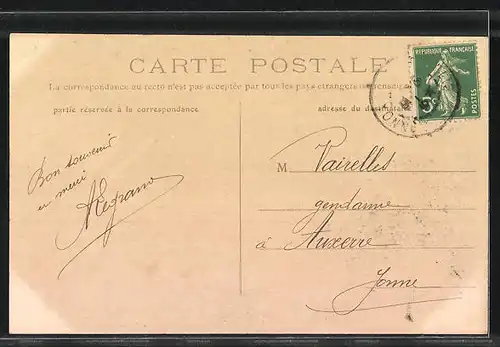 CARTE POSTALE
La correspondance au recto n'est pas acceptée par tous les pays étrangers (se renseign
partie réservée à la correspondance
adresse du destinataire
RÉPUBLIQUE FRANÇAISE
5c
POSTES
YONNE
Bon souvenir
et merci
M Vairelles
gendarme
à Auxerre
Yonne